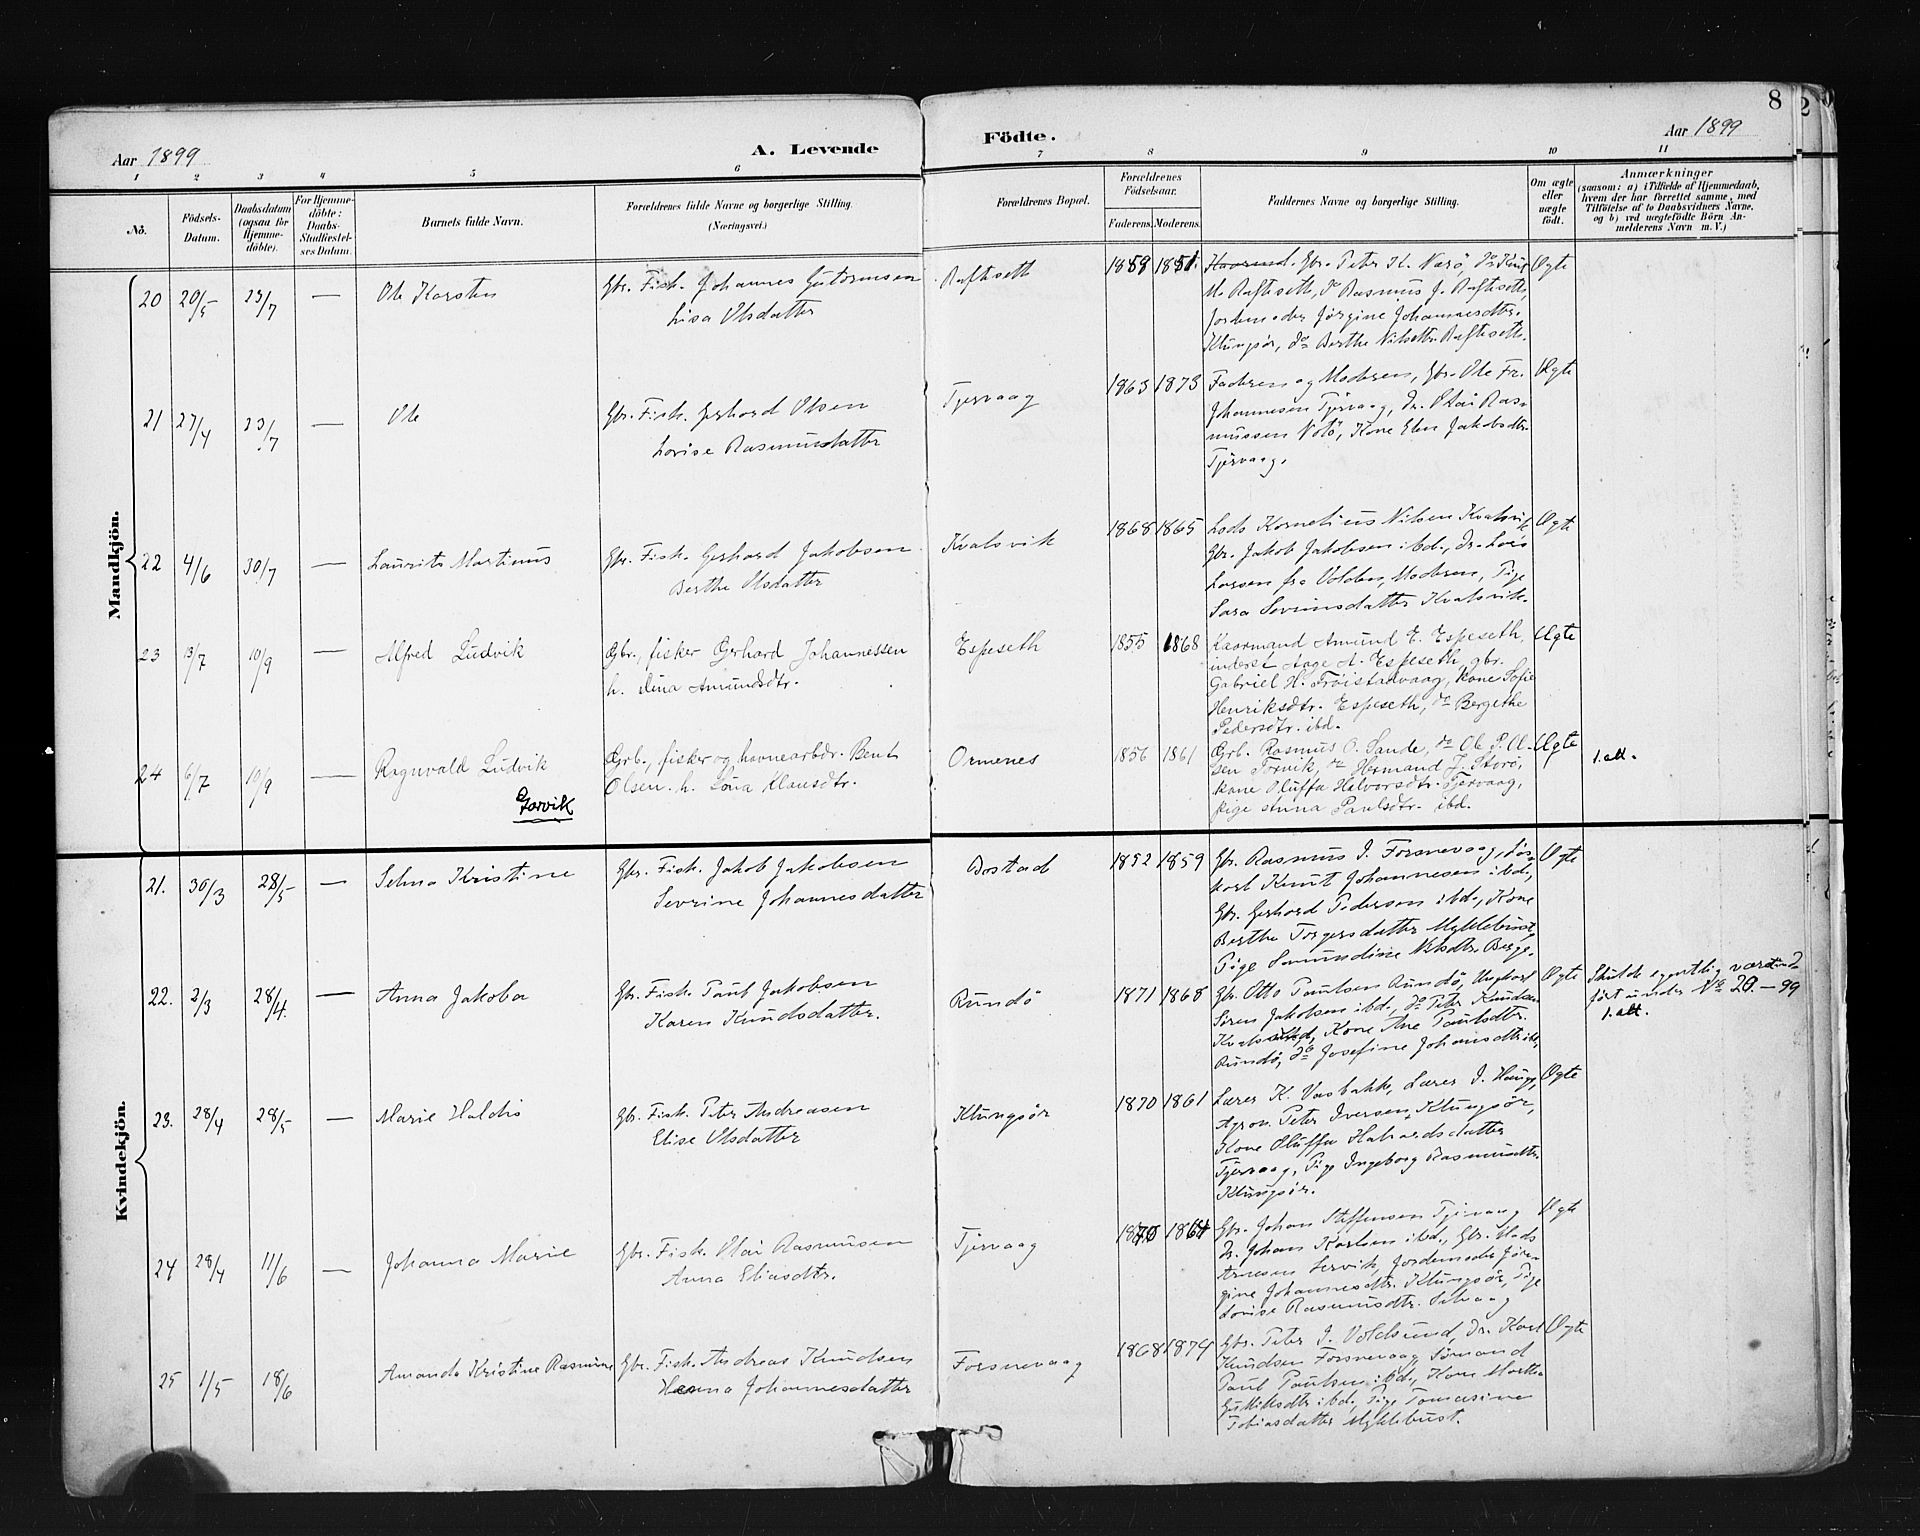 8
Aar 1899
A. Levende
Födte.
Aar 1899
1 2 3 4 5 6 7 8 9 10 11
No.
Födsels-
Datum.
Daabsdatum
(ogsaa for
Hjemme-
döbte).
For Hjemme-
döbte:
Daabs-
Stadfæstel-
ses Datum.
Barnets fulde Navn.
Forældrenes fulde Navne og borgerlige Stilling.
(Næringsvei.)
Forældrenes Bopæl.
Forældrenes
Födselsaar.
Faderens. Moderens.
Faddernes Navne og borgerlige Stilling.
Om ægte
eller
uægte
födt.
Anmærkninger
(saasom: a) i Tilfælde af Hjemmedaab,
hvem der har forrettet samme, med
Tilföielse af to Daabsvidners Navne,
og b) ved uægtefödte Börn An-
melderens Navn m. V.)
Mandkjön.
20 20/5 23/7 — Ole Karsten
Gbr. Fisk. Johannes Guttormsen
Lisa Olsdatter
Raftseth
1859 1851
Gbr. Peter K. Nærö, do Knut
M. Raftseth, do Rasmus J. Raftseth,
Jordemoder Jørgine Johannesdtr.
Klungsör, do Berthe Nilsdtr. Raftseth.
Ægte
21 27/4 23/7 — Ole
Gbr. Fisk. Gerhard Olsen
Lovise Rasmusdatter
Tjervaag
1863 1873
Faderen og Moderen, Gbr. Ole Fr.
Johannesen Tjervaag, Dr. Olai Ras-
mussen Notö, Kone Elen Jakobsdtr.
Tjervaag.
Ægte
22 4/6 30/7 — Laurits Martinus
Gbr. Fisk. Gerhard Jakobsen
Berthe Olsdatter
Kvalsvik
1868 1865
Lods Kornelius Nilsen Kvalsvik
Gbr. Jakob Jakobsen ibd., Dr. Lars
Larsen fra Volden, Moderen, Pige
Sara Sevrinsdatter Kvalsvik.
Ægte
23 13/7 10/9 — Alfred Ludvik
Gbr., fisker Gerhard Johannessen
h. Elina Amundsdtr.
Espeseth
1855 1868
Kaarmand Amund E. Espeseth,
inderst Aage A. Espeseth, gbr.
Gabriel H. Frøistadvaag, kone Sofie
Henriksdtr. Espeseth, do Bergethe
Pedersdtr. ibd.
Ægte
24 6/7 10/9 — Ragnvald Ludvik
Garvik
Grb., fisker og havnearbdr. Bent
Olsen. h. Lona Klausdtr.
Ormenes
1856 1861
Grb. Rasmus O. Sande, do Ole P. Ol-
sen Torvik, do Hermand J. Storö,
kone Oluffa Halvorsdtr. Tjervaag,
pige Anna Paulsdtr. ibd.
Ægte
1. att.
Kvindekjön.
21. 30/3 28/5 — Selma Kristine
Gbr. Fisk. Jakob Jakobsen
Sevrine Johannesdatter
Bostad
1852 1859
Gbr. Rasmus I. Forsnevaag,
Knut Johannesen ibd.,
Gbr. Gerhard Pedersen ibd., Kone
Berthe Torgersdatter Myklebust,
Pige Severine Nilsdtr. Berge.
Ægte
22. 2/3 28/4. — Anna Jakoba
Gbr. Fisk. Paul Jakobsen
Karen Knudsdatter.
Rundö
1871 1868
Gbr. Otto Paulsen Rundö, Ungkarl
Sören Jakobsen ibd., do Peter Knudsen
Kone Ane Paulsdtr.
Rundö, do Josefine Johansdtr ibd.
Ægte
Skulde egentlig været ind-
ført under No 20. — 99
1. att.
23. 28/4 28/5 — Marie Haldis
Gbr. Fisk. Peter Andreasen
Elise Olsdatter
Klungsör
1870 1861
Lærer K. Vasbakk, Lærer I. Hauge,
Agron. Peter Iversen, Klungsör,
Kone Oluffa Halvardsdatter
Tjervaag, Pige Ingeborg Rasmusdtr.
Klungsör.
Ægte
24 28/4 11/6 — Johanna Marie
Gbr. Fisk. Olai Rasmusen
Anna Eliasdtr.
Tjervaag
1870 1864
Gbr. Johan Steffensen Tjervaag
Dr. Johan Karlsen ibd., Gbr. Mads
Arnesen Lervik, Jordemoder Jør-
gine Johannesdtr. Klungsör, Pige
Lovise Rasmusdtr. Selvaag
Ægte
25 1/5 18/6 Amanda Kristine Rasmine
Gbr. Fisk. Andreas Knudsen
Hanna Johannesdatter
Forsnevaag
1868 1874
Gbr. Peter I. Voldsund, Dr. Karl
Knudsen Forsnevaag, Sömand
Paul Paulsen ibd., Kone Marthe
ibd., Pige Tomasine
Tobiasdatter Myklebust.
Ægte